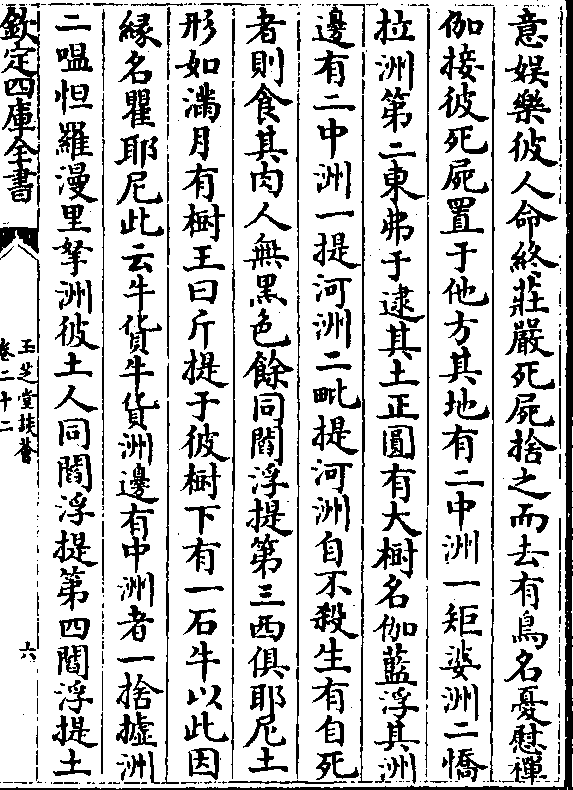 意娯樂彼人命終莊嚴死屍捨之而去有鳥名憂慰禪
伽接彼死屍置于他方其地有二中洲一矩婆洲二憍
拉洲第二東弗于逮其土正圓有大樹名伽藍浮其洲
邊有二中洲一提河洲二毗提河洲自不殺生有自死
者則食其肉人無黑色餘同閻浮提第三西俱耶尼土
形如滿月有樹王曰斤提于彼樹下有一石牛以此因
縁名瞿耶尼此云牛貨牛貨洲邊有中洲者一捨攎洲
二嗢怛羅漫里拏洲彼土人同閻浮提第四閻浮提土
欽定四庫全書
玉芝堂談薈
卷二十二
六